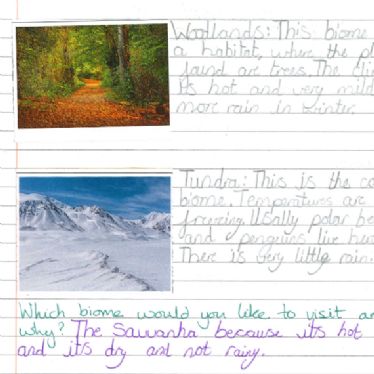 Woodlands: This biome
a habitat, where the pl
found are trees. The cli
Its hot and very mild
more rain in winter.
Tundra: This is the co
biome. Temperatures are
freezing. Usally polar be
and penguins live her
There is very little rain.
Which biome would you like to visit an
why? The Savvanha because it's hot
and it's dry and not rainy.